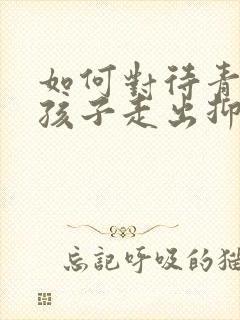 如何對待青
孩子走出抑
忘記呼吸的貓